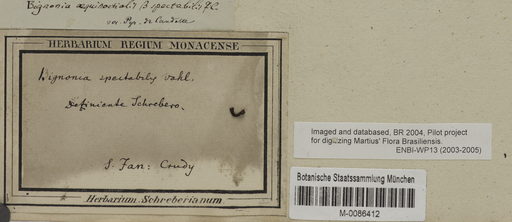 Bignonia aequinoctialis β spectabilis
ex. Pyr. de Candolle
HERBARIUM REGIUM MONACENSE
Bignonia spectabilis vahl.
Definiente Schrebero.
S. Jan: Crudy
Herbarium Schreberianum
Imaged and databased, BR 2004, Pilot project
for digitizing Martius' Flora Brasiliensis.
ENBI-WP13 (2003-2005)
Botanische Staatssammlung München
M-0086412